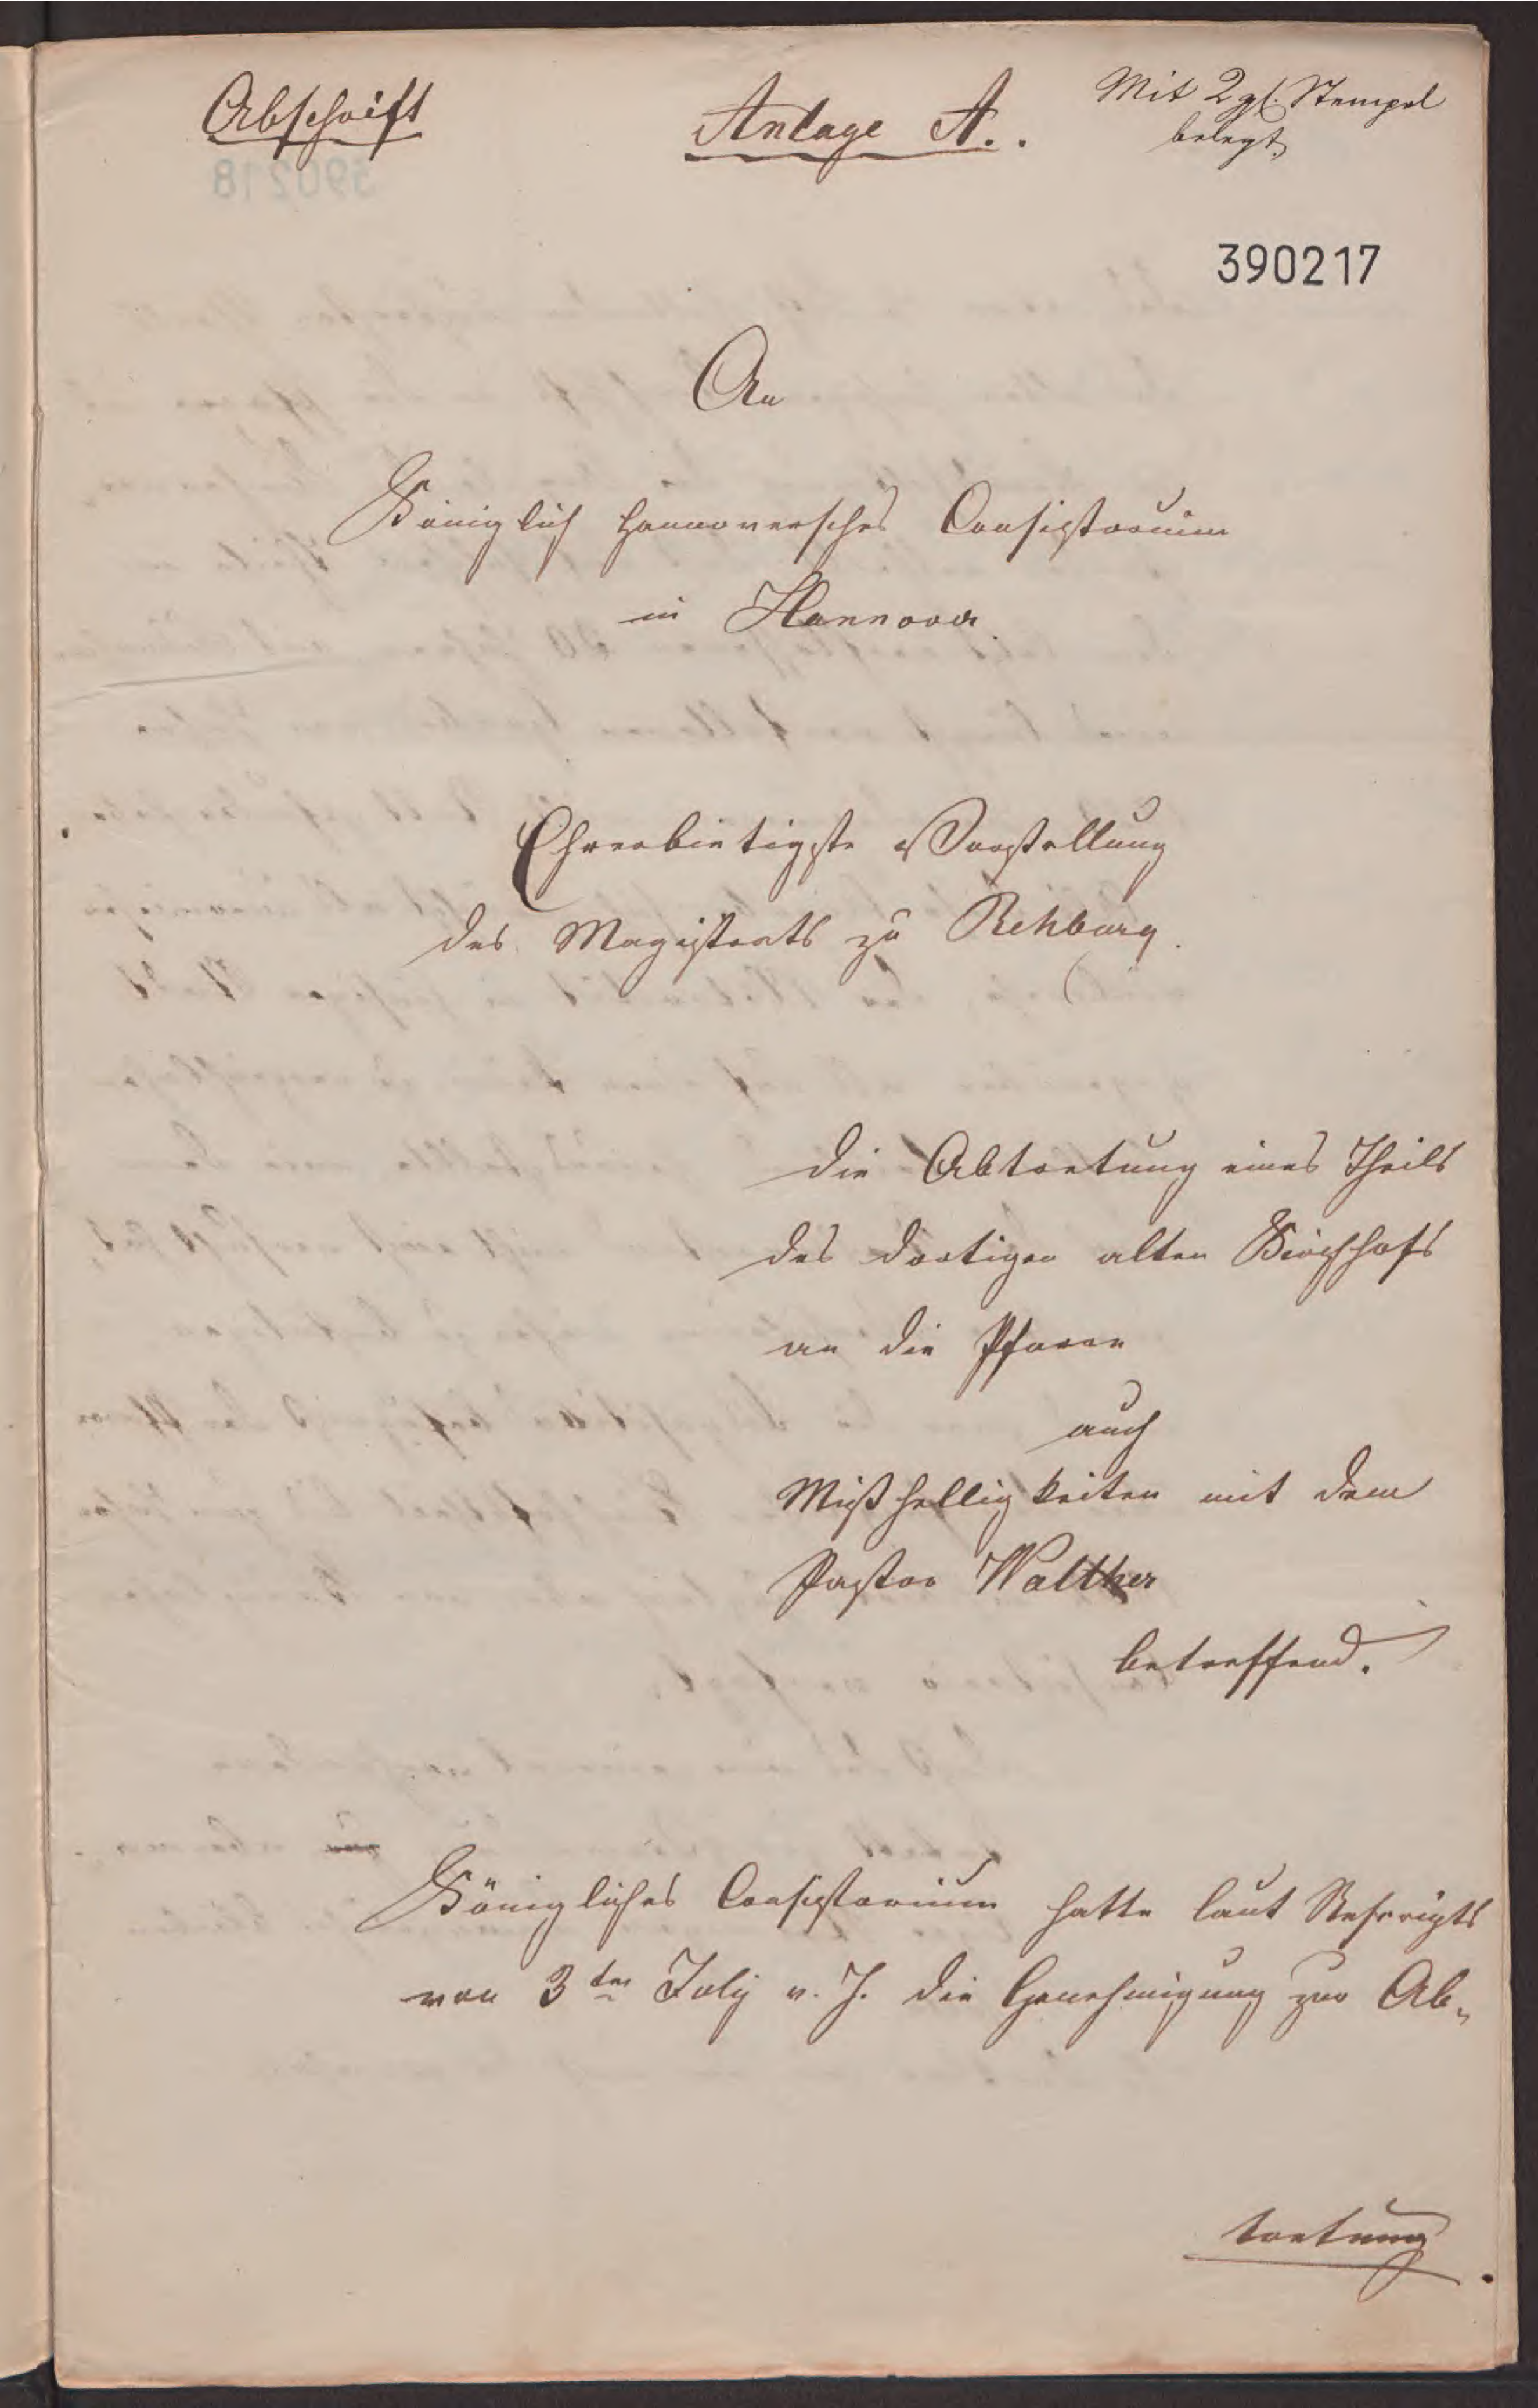 Abschrift
Anlage A.
Mit 2 gl. Stempel
belegt
390217
An
Königlich Hannoversches Consistorium
in Hannover.
Ehrerbietigste Vorstellung
des Magistrats zu Rehburg.
die Abtretung eines Theils
des dortigen alten Kirchhofs
an die Pfarre
auch
Mißhelligkeiten mit dem
Pastor Walther
betreffend.
Königliches Consistorium hatte laut Rescripts
von 3ten July v. J. die Genehmigung zur Ab-
tretung